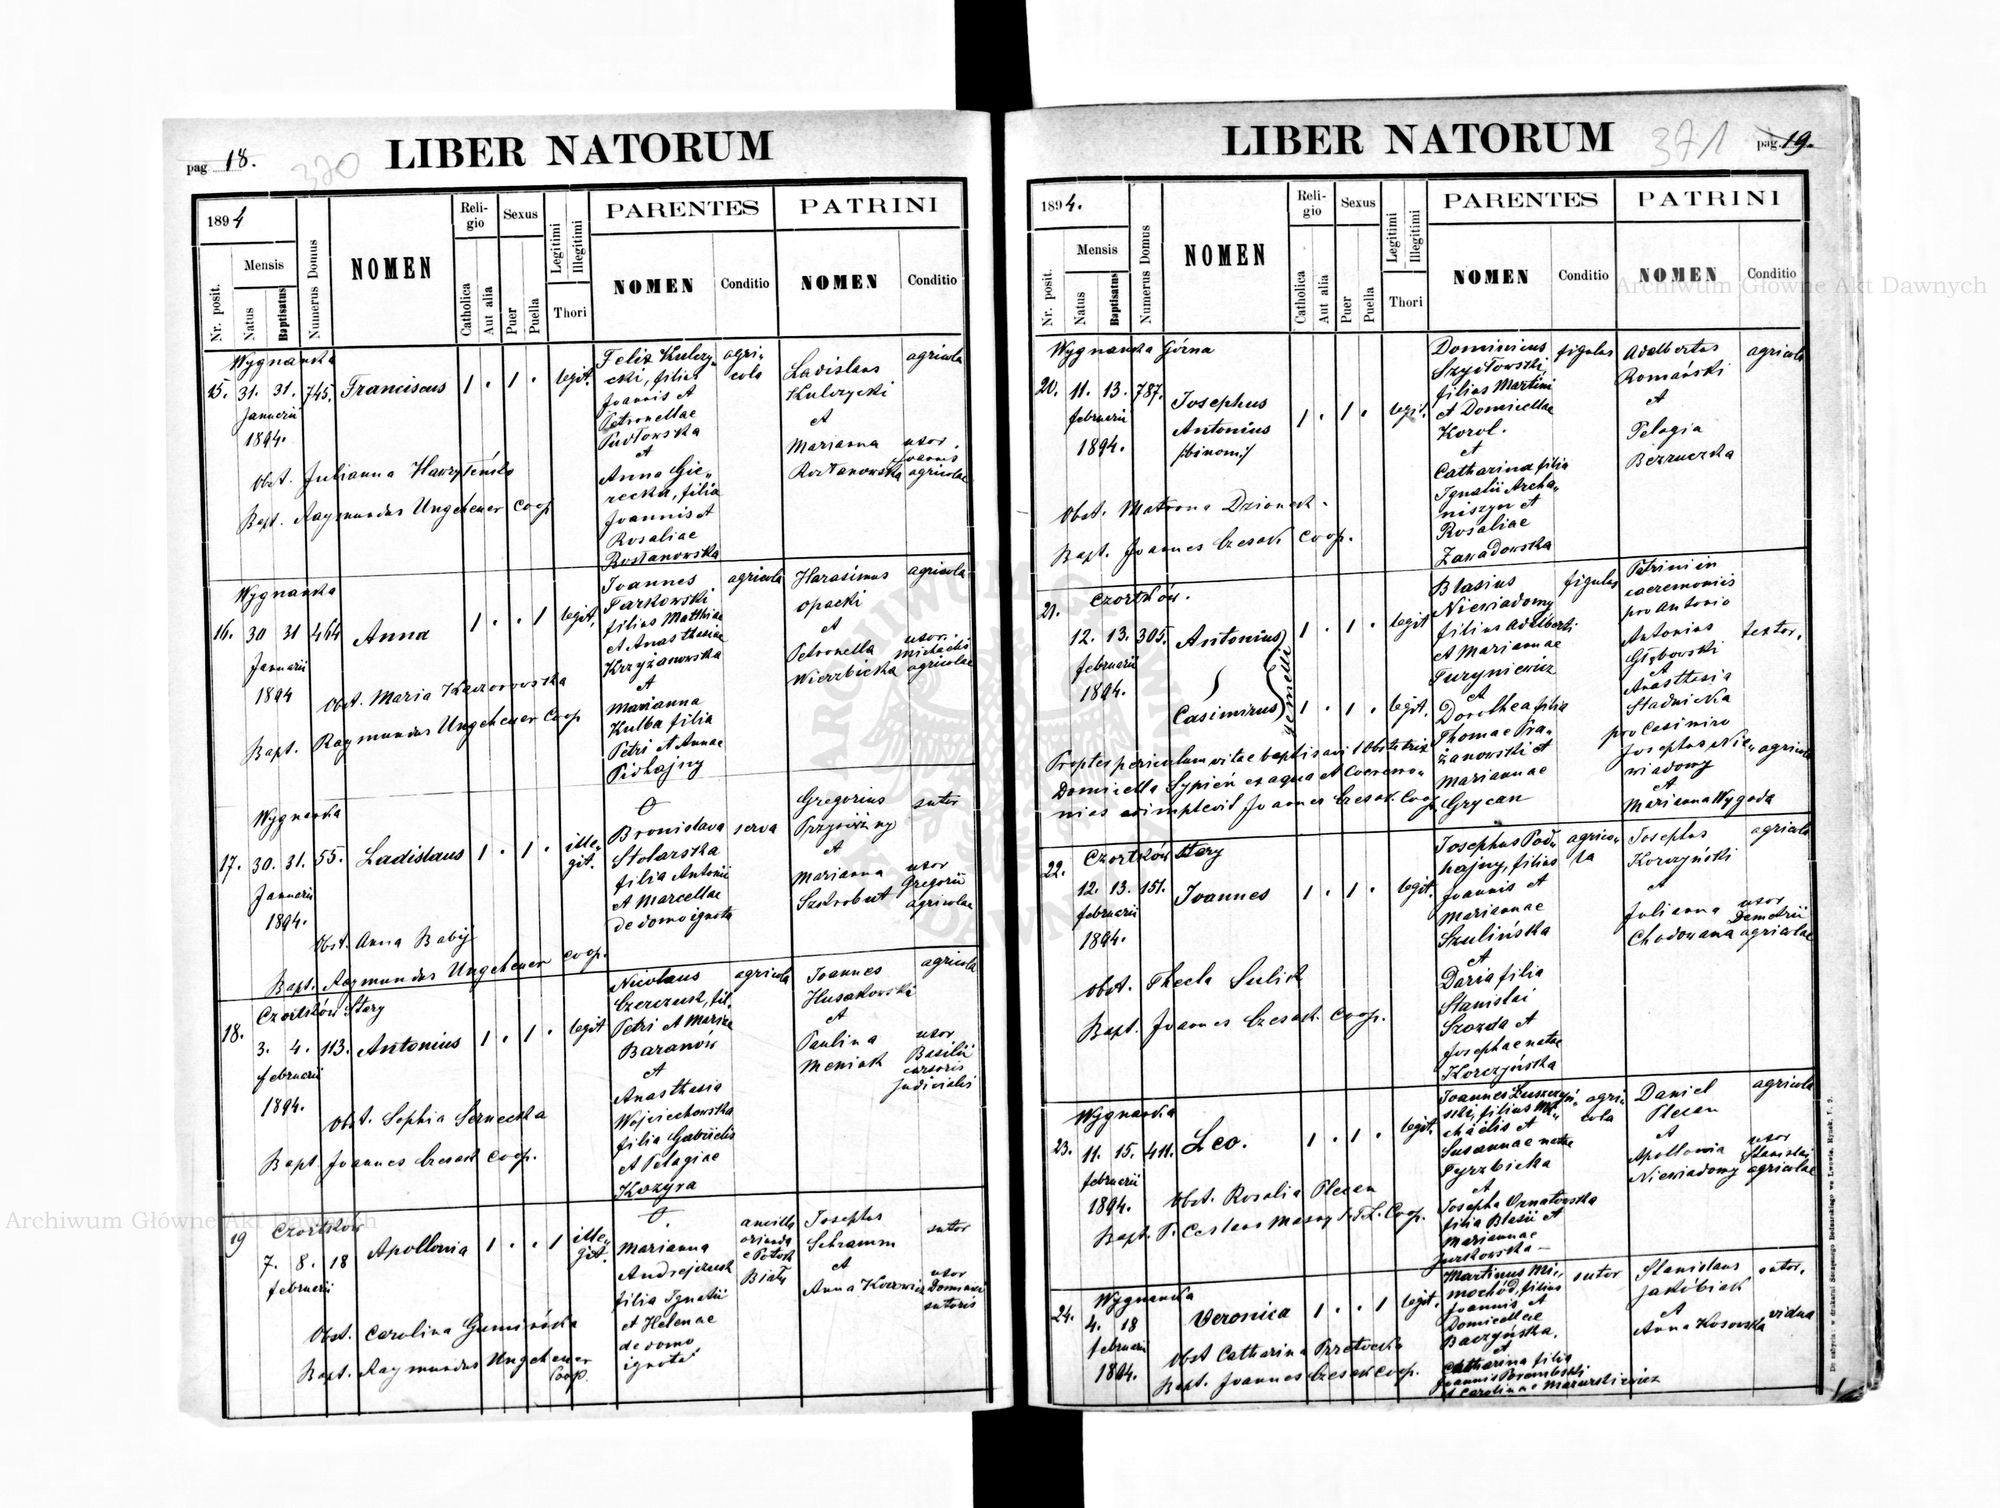 pag 18.
370
LIBER NATORUM
1894
Nr. posit.
Mensis
Natus
Baptisatus
Numerus Domus
NOMEN
Religio
Catholica
Aut alia
Sexus
Puer
Puella
Legitimi
Illegitimi
Thori
PARENTES
NOMEN
Conditio
PATRINI
NOMEN
Conditio
Wygnanka
15. 31. 31. 745. Franciscus 1 . 1 . legit.
Januarii
1894.
Obst. Julianna
Bapt. Raymundus Ungeheuer Coop
Felix Kulczy-
cki, filius
Joannis et
Petronellae
Pawłowska
et
Anna Gie-
recka, filia
Joannis et
Rosaliae
Rostanowska
agri-
cola
Ladislaus
Kulczycki
et
Marianna
agricola
uxor
Joannis
agricolae
Wygnanka
16. 30 31 464 Anna 1 . . 1 legit.
Januarii
1894
Obst. Maria Kaczorowska
Bapt. Raymundus Ungeheuer Coop
Joannes
Tarkowski
filius Matthiae
et Anasthasiae
Krzyżanowska
et
Marianna
Kulba filia
Petri et Annae
Pidhajny
agricola
Harasimus
Opacki
et
Petronella
Wierzbicka
agricola
uxor
Michaelis
agricolae
Wygnanka
17. 30. 31. 55. Ladislaus 1 . 1 . ille-
git.
Januarii
1894.
Obst. Anna Babij
Bapt. Raymundus Ungeheuer coop.
Bronislava
Stolarska
filia Antonii
et Marcellae
de domo ignota
serva
Gregorius
Przysiężny
et
Marianna
sutor
uxor
Gregorii
agricolae
Czortków Stary
18. 3. 4. 113. Antonius 1 . 1 . legit
februarii
1894.
Obst. Sophia Sernecka
Bapt Joannes Czesak Coop.
Nicolaus
fil.
Petri et Mariae
Baranów
et
Anasthasia
Wojciechowska
filia Gabrielis
et Pelagiae
Kozyra
agricola
Joannes
Husakowski
et
Paulina
Meniok
agricola
uxor
Basilii
cursoris
judicialis
Czortków
19 7. 8. 18 Apollonia 1 . . 1 ille-
git.
februarii
Obst. Carolina
Bapt. Raymundus Ungeheuer
Coop.
Marianna
Andrejczuk
filia Ignatii
et Helenae
de domo
ignota
ancilla
oriunda
e Potok
Biały
Josephus
Schramm
et
Anna
sutor
uxor
Dominici
sutoris
LIBER NATORUM
371
pag. 19.
1894.
Nr. posit.
Mensis
Natus
Baptisatus
Numerus Domus
NOMEN
Religio
Catholica
Aut alia
Sexus
Puer
Puella
Legitimi
Illegitimi
Thori
PARENTES
NOMEN
Conditio
PATRINI
NOMEN
Conditio
Wygnanka Górna
20. 11. 13. 787. Josephus 1 . 1 . legit.
februarii
Antonius
1894.
/:binom:/
Obst. Matrona Dzionek.
Bapt. Joannes Czesak Coop.
Dominicus
Szydłowski,
filius Martini
et Domicellae
Korol.
et
Catharina filia
Ignatii Archa-
niszyn et
Rosaliae
Zawadowska
figulus
Adalbertus
Romański
et
Pelagia
Bezruczka
agricola
Czortków.
21. 12. 13. 305. Antonius 1 . 1 . legit
februarii
1894.
gemelli
Casimirus 1 . 1 . legit.
Propter periculum vitae baptisavit Obstetrix
Domicella Sypień ex aqua et Coeremo-
nias adimplevit Joannes Czesak Coop
Blasius
Niewiadomy
filius Adalberti
et Mariannae
Turyniewicz
et
Dorothea filia
Thomae Pra-
żanowski et
Mariannae
Grycan
figulus
Patrini in
caeremoniis
pro Antonio
Antonius
Głębowski
et
Anasthasia
Stadnicka
pro Casimiro
Josephus Nie-
wiadomy
et
Marianna Wygoda
textor.
agricola
Czortków Stary
22. 12. 13. 151. Joannes 1 . 1 . legit.
februarii
1894.
Obst. Thecla Sulik
Bapt. Joannes Czesak Coop.
Josephus Pod-
hajny, filius
Joannis et
Mariannae
Szulińska
et
Daria filia
Stanislai
Szozda et
Josephae natae
Korczyńska
agrico-
la
Josephus
Korczyński
et
Julianna
Chodowana
agricola
uxor
Demetrii
agricolae
Wygnanka
23. 11. 15. 411. Leo. 1 . 1 . legit.
februarii
1894.
Obst. Rosalia Plecan
Bapt. P. Ceslaus Mascy S.T.L. Coop.
Joannes Łuszczyń-
ski, filius Mi-
chaelis et
Susannae natae
Tyrzbicka
et
Josepha Ornatowska
filia Blasii et
Mariannae
Jurkowska
agri-
cola
Daniel
Plecan
et
Apollonia
Niewiadomy
agricola
uxor
Stanislai
agricolae
Wygnanka
24. 4. 18 Veronica 1 . . 1 legit.
februarii
1894.
Obst Catharina
Bapt. Joannes Czesak coop.
Martinus Mi-
mochód, filius
Joannis et
Domicellae
Baczyńska.
et
Catharina filia
Joannis
et Carolinae Mazurkiewicz
sutor
Stanislaus
Jakóbiak
et
Anna Kosowska
sutor.
vidua
Archiwum Główne Akt Dawnych
Archiwum Główne Akt Dawnych